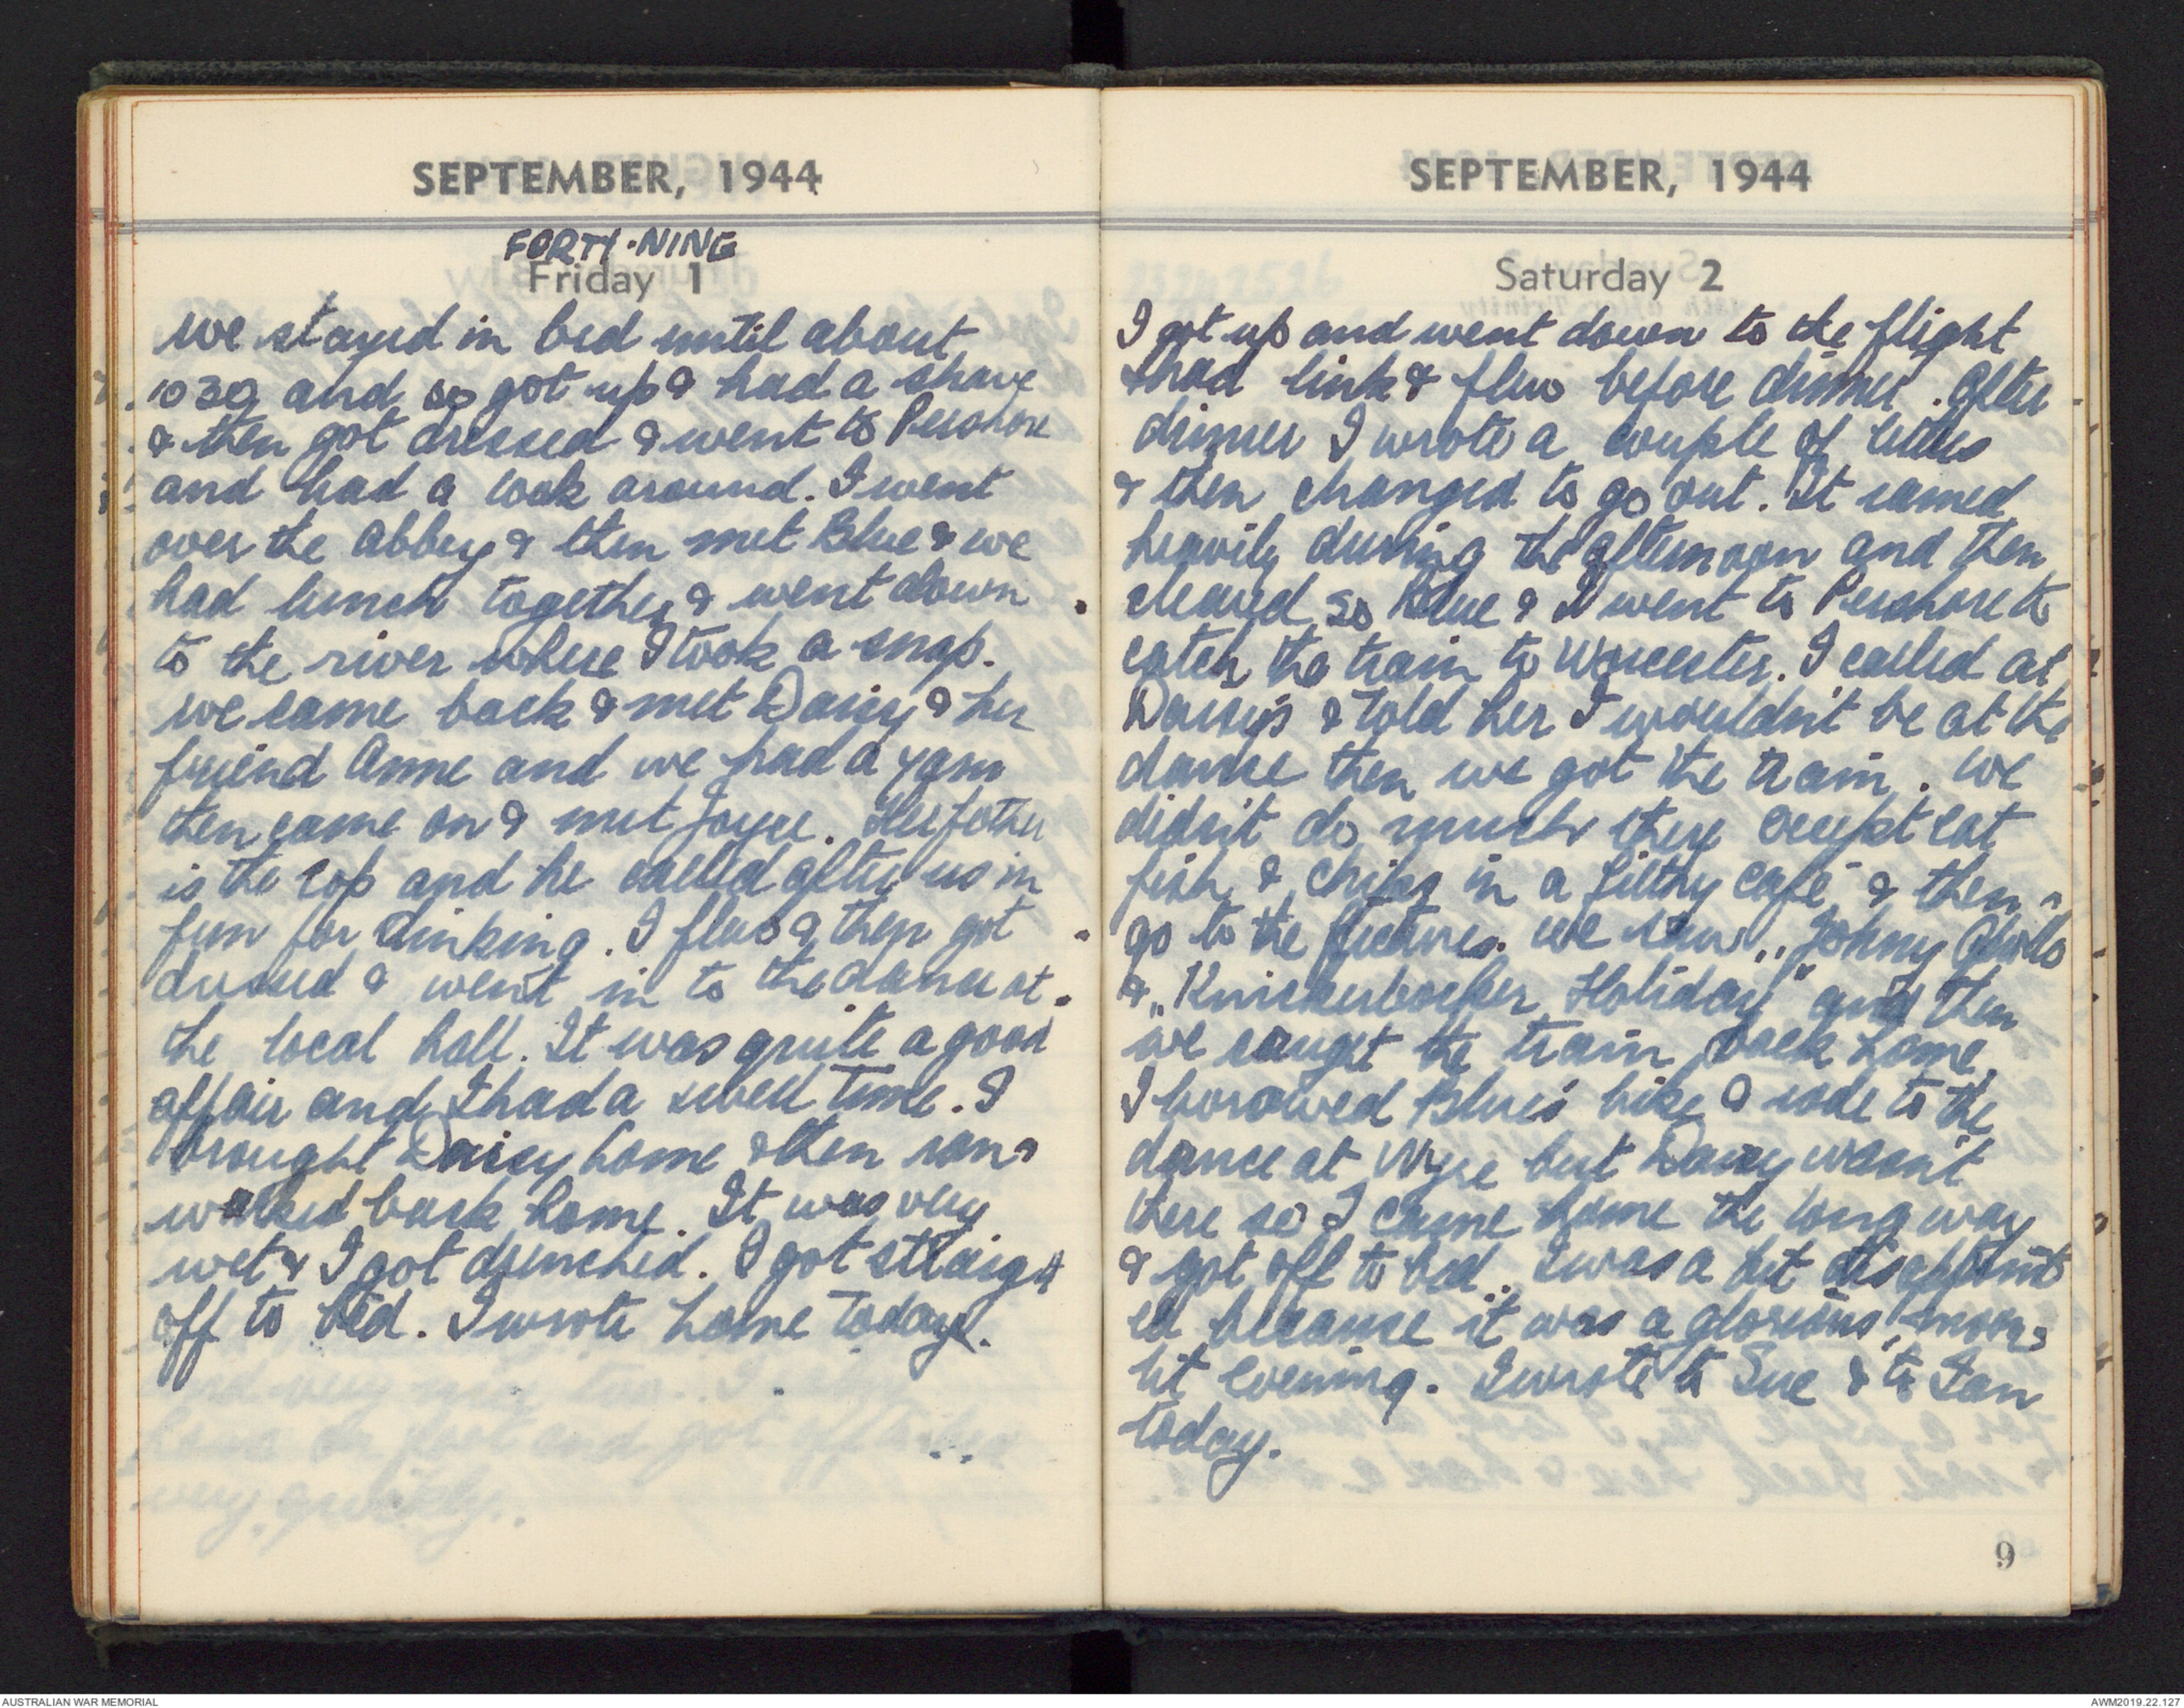 SEPTEMBER, 1944
FORTY-NINE
Friday 1
We stayed in bed until about
1030 and so got up & had a shave
& then got dressed & went to Pershore
and had a look around. I went
over the Abbey & then met Blue & we
had lunch together & went down
to the river where I took a snap.
We came back & met Daisy & her
friend Anne and we had a yarn
then came on & met Joyce. Her father
is the cop and he called after us in
fun for drinking. I flew & then got
dressed & went in to the dance at
the local hall. It was quite a good
affair and I had a swell time. I
brought Daisy home & then ran &
walked back home. It was very
wet & I got drenched. I got straight
off to bed. I wrote home today.
SEPTEMBER, 1944
Saturday 2
I got up and went down to the flight
& had link & flew before dinner. After
dinner I wrote a couple of letters
& then changed to go out. It rained
heavily during the afternoon and then
cleared so Blue & I went to Pershore to
catch the train to Worcester. I called at
Daisy's & told her I wouldn't be at the
dance then we got the train. We
didn't do much there except eat
fish & chips in a filthy café & then
go to the pictures. We saw "Johnny
& "Knickerbocker Holiday" and then
we caught the train back home.
I borrowed Blue's bike & rode to the
dance at Wyre but Daisy wasn't
there so I came home the long way
& got off to bed. I was a bit disappoint
ed because it was a glorious moon
lit evening. I wrote to Sue & to Ian
today.
9
AUSTRALIAN WAR MEMORIAL
AWM2019.22.127